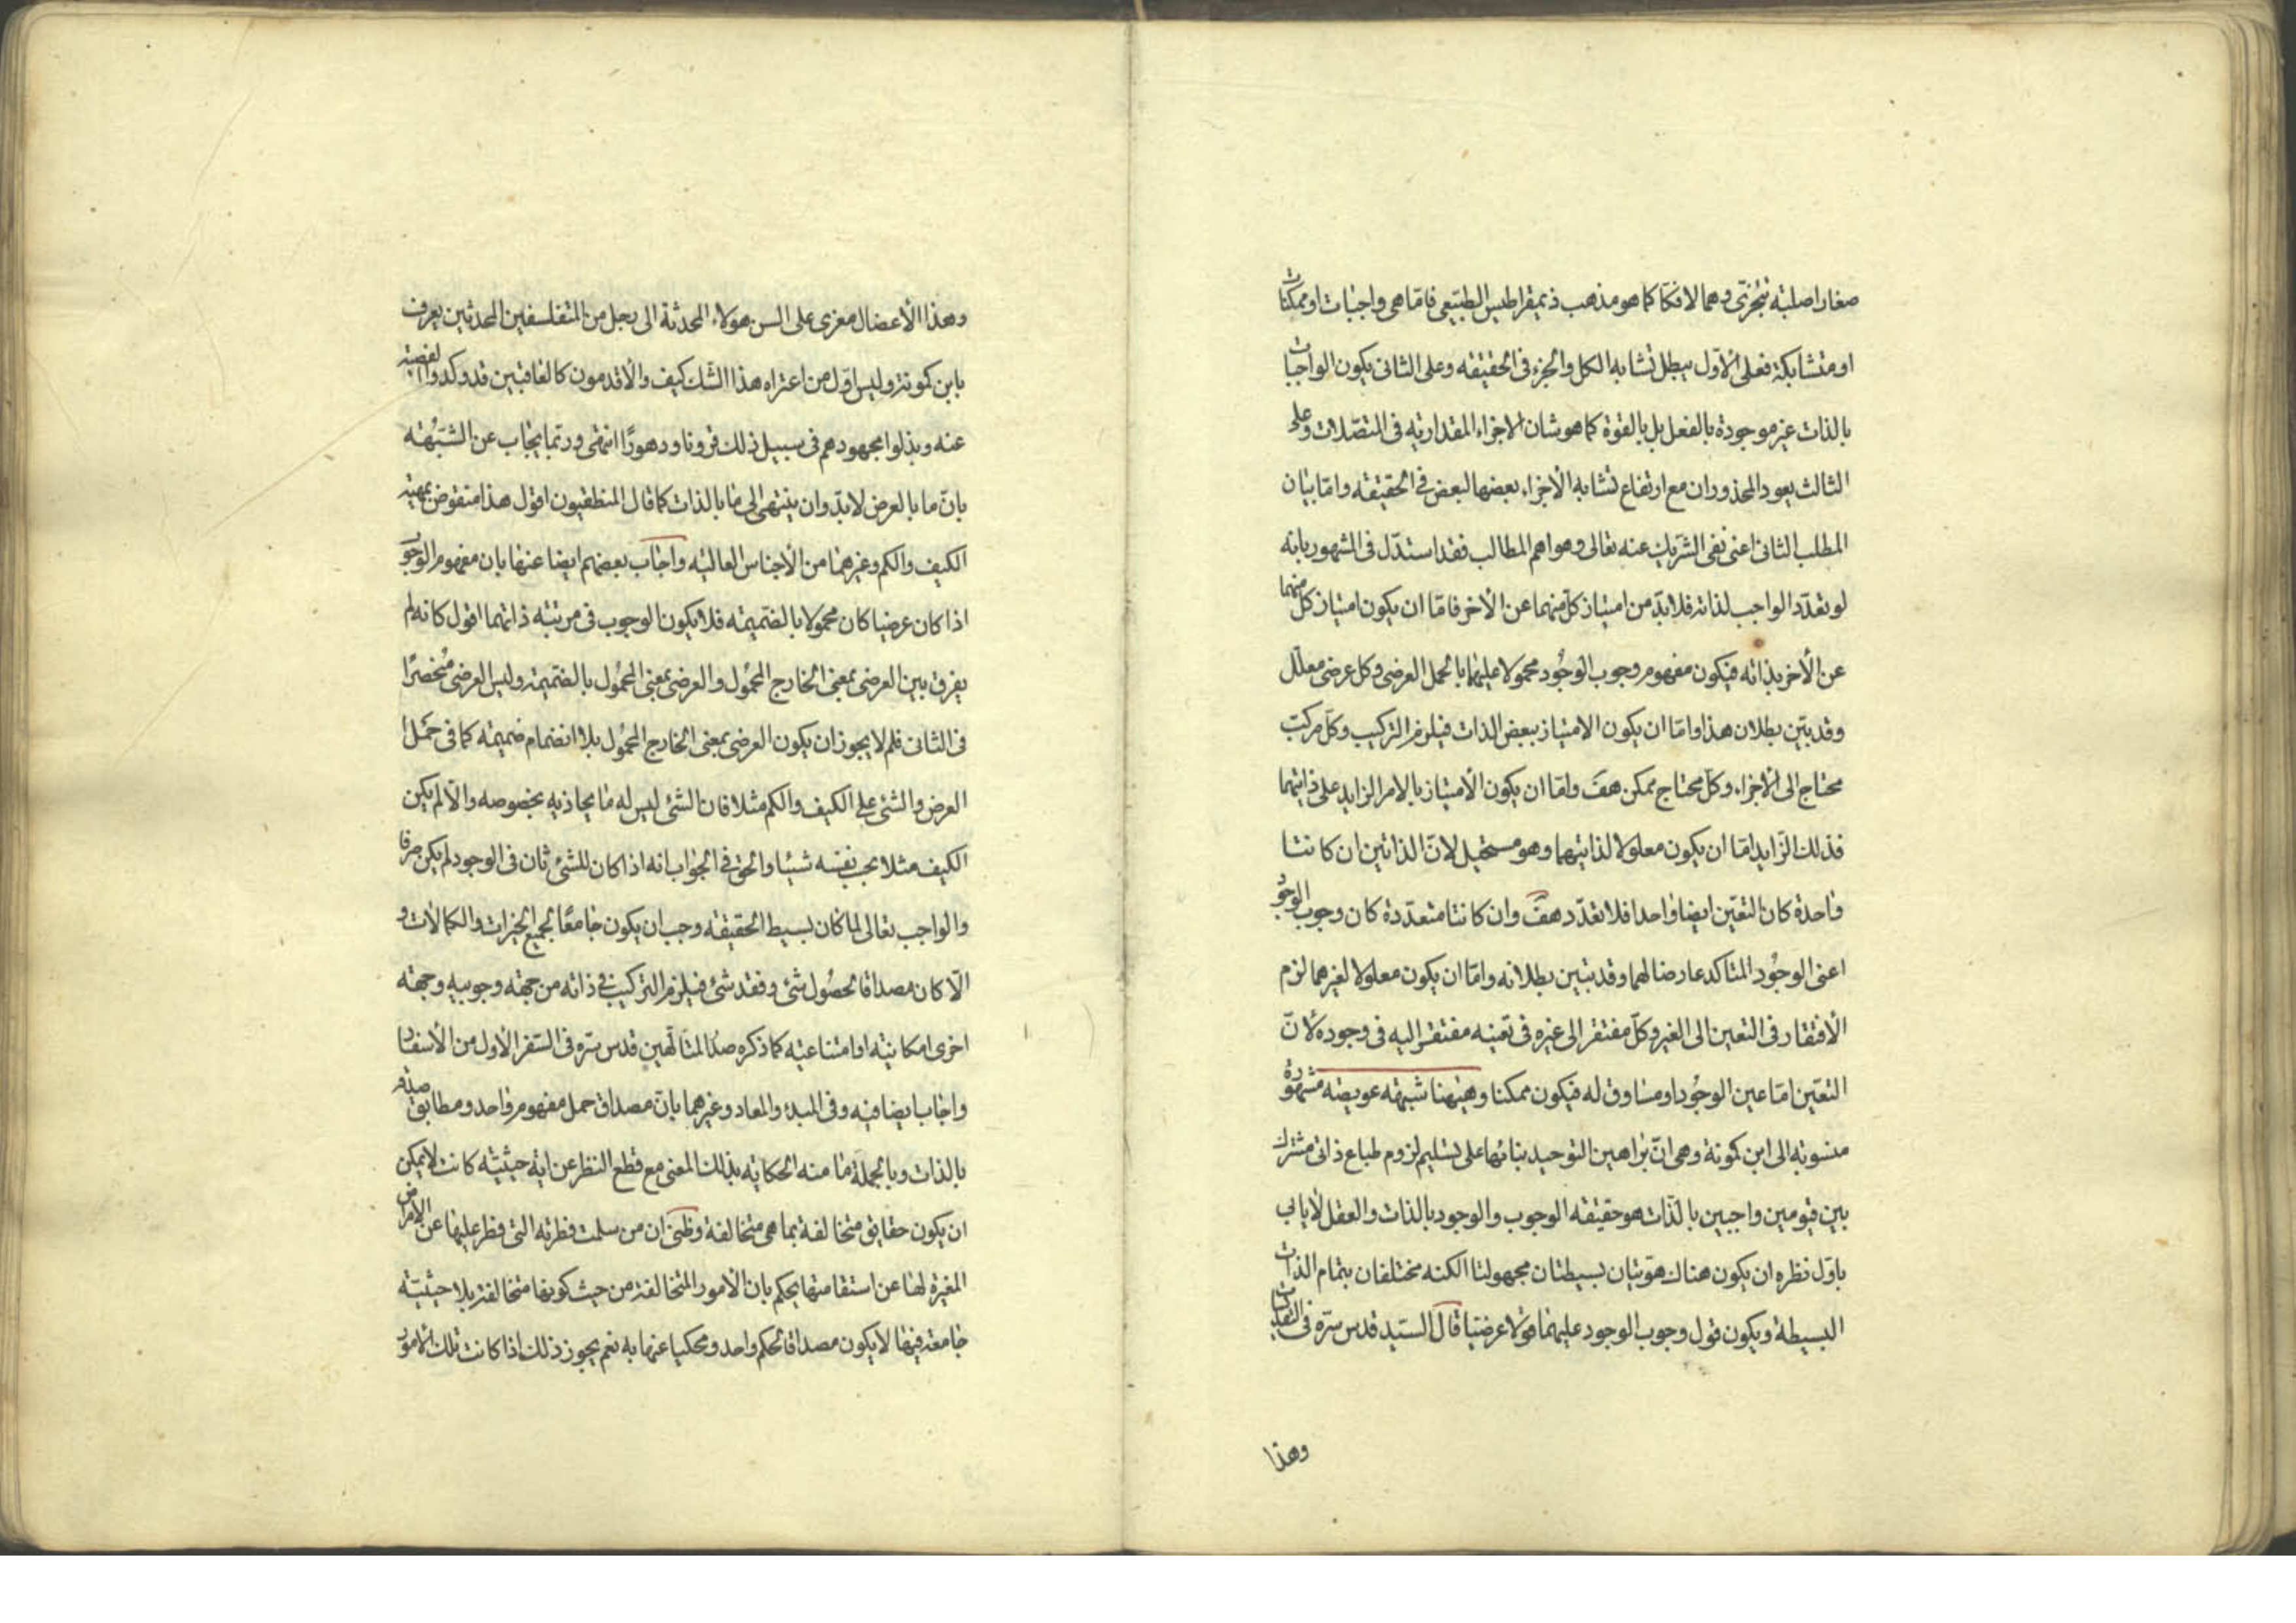 صغار اصلبة تتجزى وهما لا فكا كما هو مذهب ذيمقراطيس الطبيعى فاما هى واجبات او ممكنات
او متشابكة فعلى الاول يبطل تشابه الكل والجزء فى الحقيقة وعلى الثانى يكون الواجبات
بالذات غير موجودة بالفعل بل بالقوة كما هو شان الاجزاء المقدارية فى المتصلات وعلى
الثالث يعود المحذوران مع ارتفاع تشابه الاجزاء بعضها لبعض فى الحقيقة واما بيان
المطلب الثانى اعنى نفى الشريك عنه تعالى وهو اهم المطالب فقد استدل فى المشهور بانه
لو تعدد الواجب لذاته فلا بد من امتياز كل منهما عن الاخر فاما ان يكون امتياز كل منهما
عن الاخر بذاته فيكون مفهوم وجوب الوجود محمولا عليهما بالحمل العرضى وكل عرضى معلل
وقد بين بطلان هذا واما ان يكون الامتياز ببعض الذات فيلزم التركيب وكل مركب
محتاج الى الاجزاء وكل محتاج ممكن هف واما ان يكون الامتياز بالامر الزايد على ذاتيهما
فذلك الزايد اما ان يكون معلولا لذاتيهما وهو مستحيل لان الذاتين ان كانتا
واحدة كان التعين ايضا واحدا فلا تعدد هف وان كانتا متعددة كان وجوب الوجود
اعنى الوجود المتاكد عارضا لهما وقد تبين بطلانه واما ان يكون معلولا لغيرهما لزم
الافتقار فى التعين الى الغير وكل مفتقر الى غيره فى تعينه مفتقر اليه فى وجوده لان
التعين اما عين الوجود او مساوق له فيكون ممكنا وهيهنا شبهة عويصة مشهورة
منسوبة الى ابن كمونة وهى ان براهين التوحيد بنائها على تسليم لزوم طباع ذاتى مشترك
بين قيومين واجبين بالذات هو حقيقة الوجوب والوجود بالذات والعقل لا يابى
باول نظره ان يكون هناك هويتان بسيطتان مجهولتا الكنه مختلفتان بتمام الذات
البسيطة ويكون قول وجوب الوجود عليهما قولا عرضيا قال السيد قدس سره فى
وهذا
وهذا الاعضال معزى على السن هولاء المحدثة الى رجل من المتفلسفين المحدثين يعرف
بابن كمونة وليس اول من اعتراه هذا الشك كيف والاقدمون كالعاقبين قد وكدوا
عنه وبذلوا مجهودهم فى سبيل ذلك قرونا ودهورا انتهى وربما يجاب عن الشبهة
بان ما بالعرض لا بد وان ينتهى الى ما بالذات كما قال المنطقيون اقول هذا منقوض بمهية
الكيف والكم وغيرهما من الاجناس العالية واجاب بعضهم ايضا عنها بان مفهوم الوجود
اذا كان عرضيا كان محمولا بالضميمة فلا يكون الوجوب فى مرتبة ذاتهما اقول كانه لم
يفرق بين العرضى بمعنى الخارج المحمول والعرضى بمعنى المحمول بالضميمة وليس العرضى منحصرا
فى الثانى فلم لا يجوز ان يكون العرضى بمعنى الخارج المحمول بلا انضمام ضميمة كما فى حمل
العرض والشئ على الكيف والكم مثلا فان الشئ ليس له ما يحاذيه بخصوصه والا لم يكن
الكيف مثلا بحسب نفسه شيئا والحق فى الجواب انه اذا كان للشئ ثان فى الوجود لم يكن صرفا
والواجب تعالى لما كان بسيط الحقيقة وجب ان يكون جامعا لجميع الخيرات والكمالات و
الا كان مصداقا لحصول شئ وفقد شئ فيلزم التركيب فى ذاته من جهة وجوبيه وجهة
اخرى امكانية او امتناعية كما ذكره صدر المتالهين قدس سره فى السفر الاول من الاسفار
واجاب ايضا فيه وفى المبدء والمعاد وغيرهما بان مصداق حمل مفهوم واحد ومطابق صدقه
بالذات وبالجملة ما منه الحكاية بذلك المعنى مع قطع النظر عن اية حيثية كانت لا يمكن
ان يكون حقايق متخالفة بما هى متخالفة وظنى ان من سلمت فطرته التى فطر عليها عن الامراض
المغيرة لها عن استقامتها يحكم بان الامور المتخالفة من حيث كونها متخالفة بلا حيثية
جامعة فيها لا يكون مصداقا لحكم واحد ومحكيا عنها به نعم يجوز ذلك اذا كانت تلك الامور